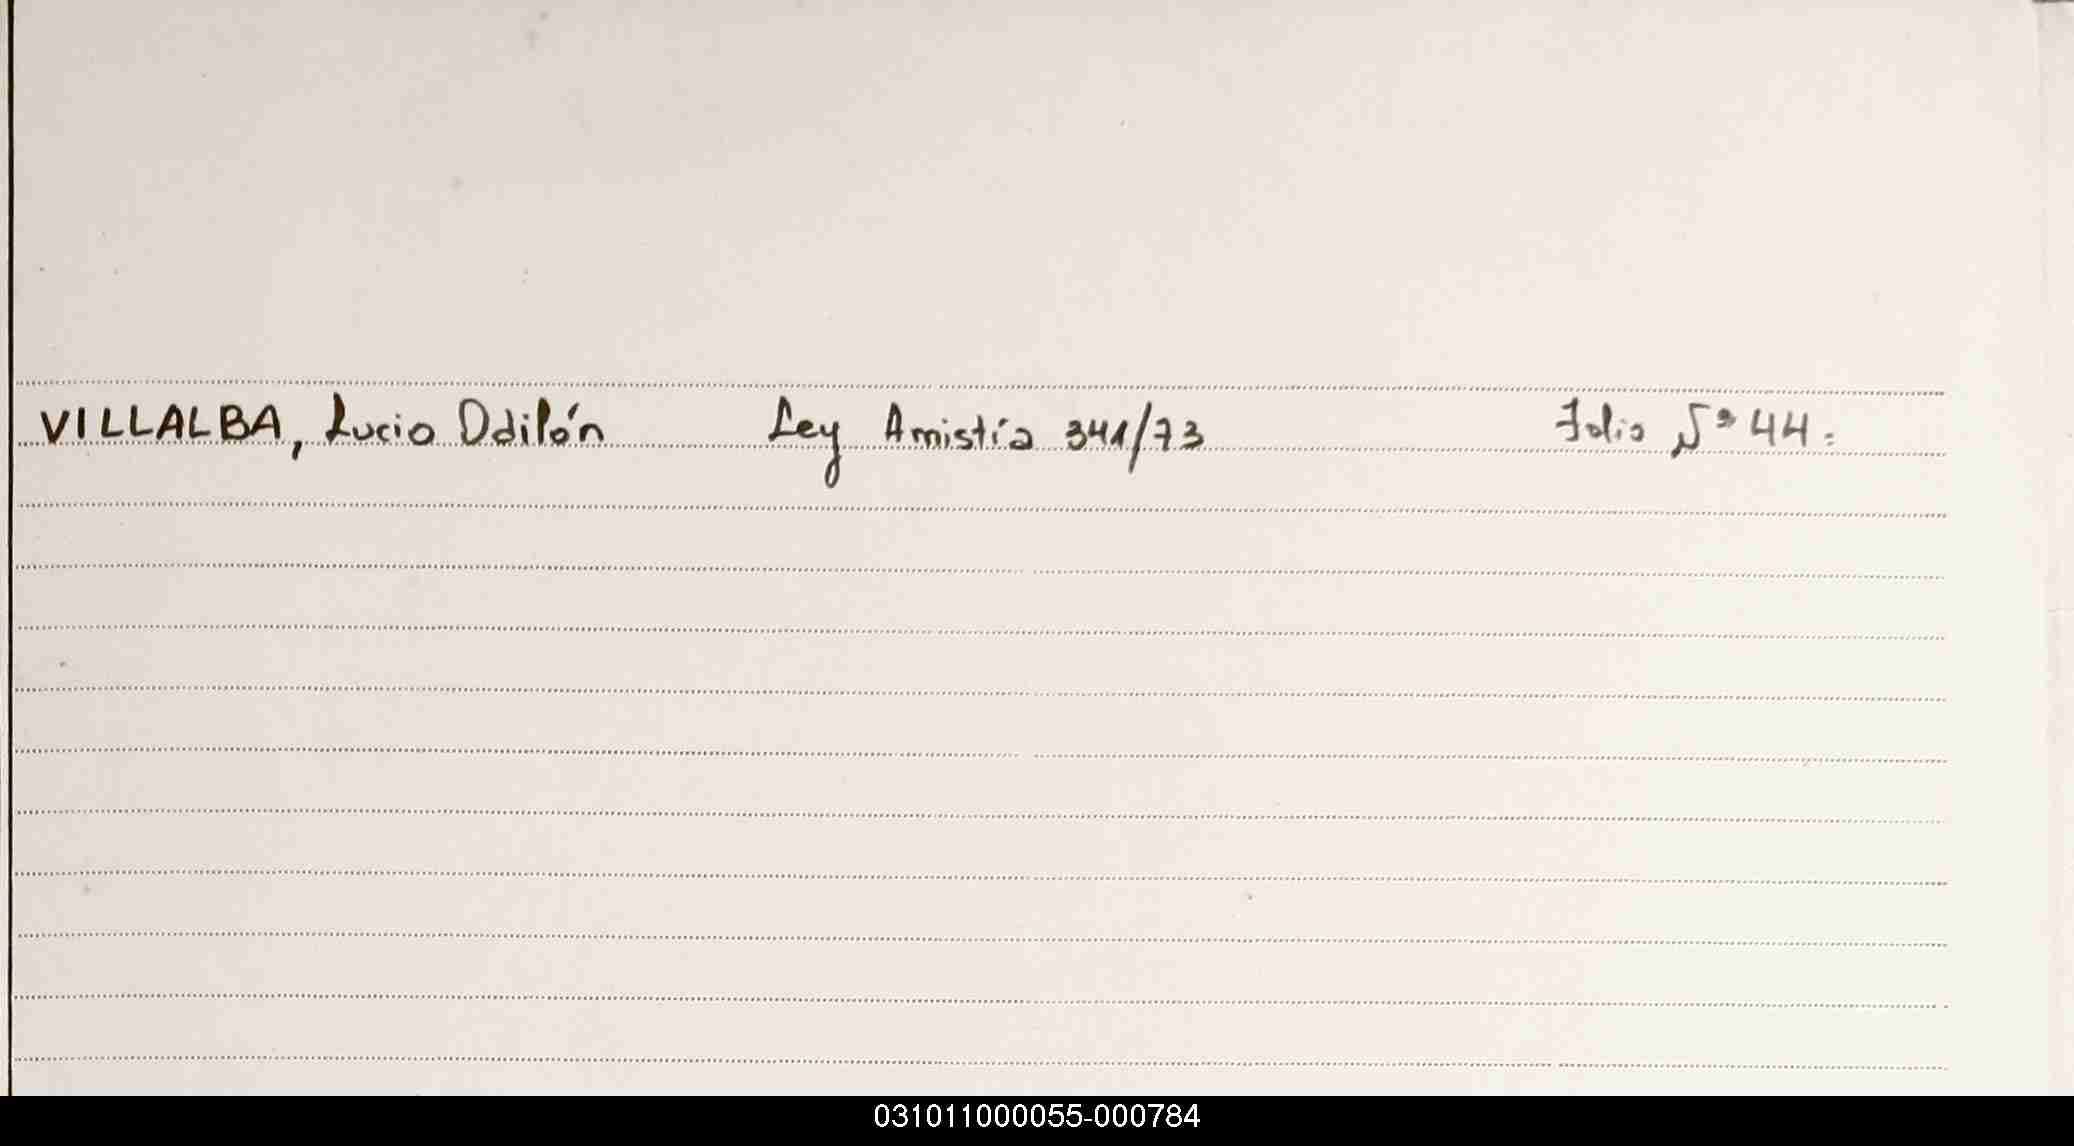 VILLALBA, Lucio Odilón Ley Amistía 341/73 Folio Nº 44.
031011000055-000784